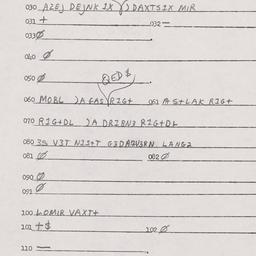 030 AZEJ DEJNK IX ) DAXTSIX MIR
031 + 032 —
033 Ø
040 Ø
050 Ø
QED $
060 MOBL )A EAS RIG+ 061 A S+LAK RIG+
070 RIG+DL )A DRIBN3 RIG+DL
080 39 V3T NIS+T G3DA LANG2
081 Ø 082 Ø
090 Ø
091 Ø
100 LOMIR VAXT+
101 +$ 102 Ø
110 —